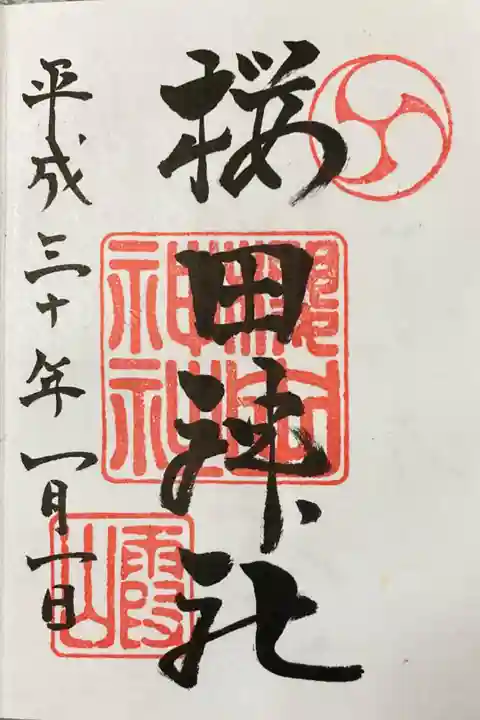 桜田神社
櫻田
神社
霞山
平成三十年一月一日